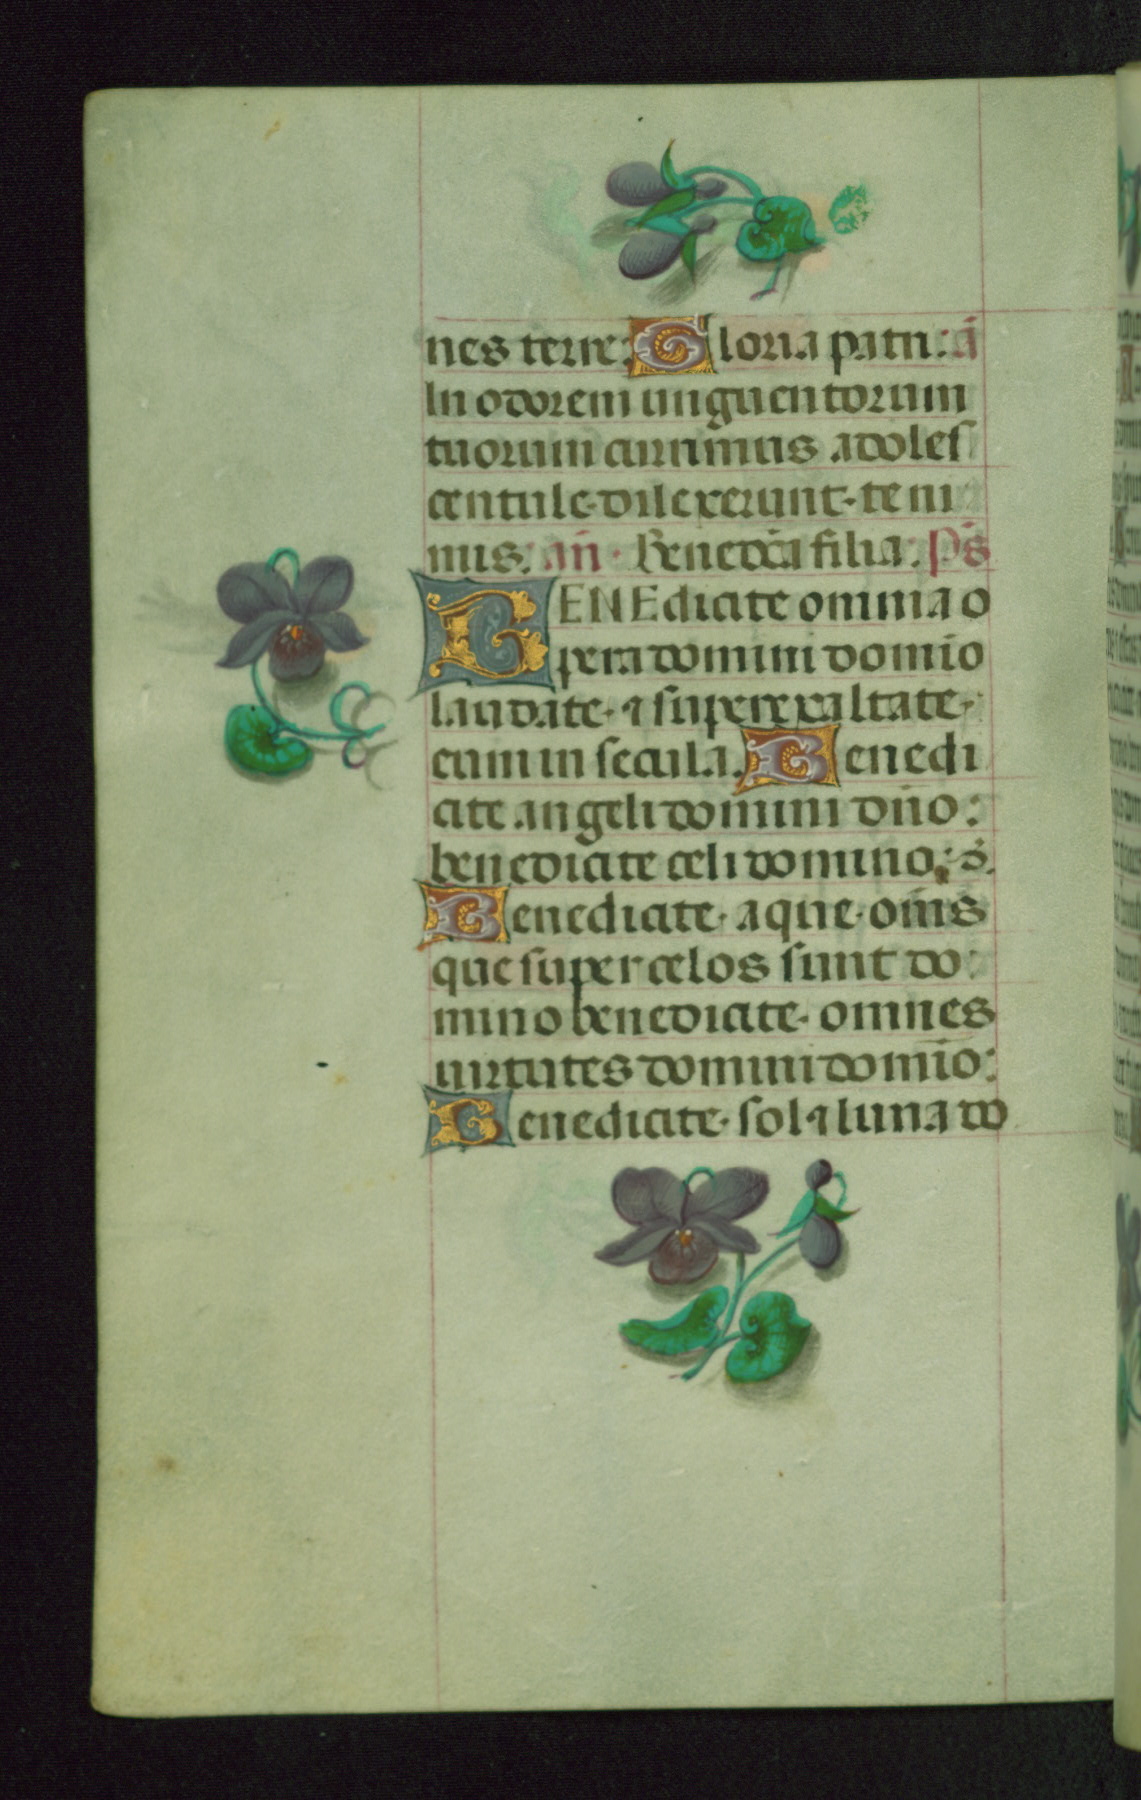 nes terre: Gloria patri: ā
In odorem unguentorum
tuorum currimus adoles
centule dilexerunt te ni
mus: an̄ · Benedc̄a filia: Ps̄
BENEdicite omnia o
pera domini domīo
laudate · ⁊ superexaltate
eum in secula. Benedi
cite angeli domini dn̄o:
benedicite celi domino: ·
Benedicite · aque · om̄s
que super celos sunt do:
mino benedicite · omnes
uirtutes domini domīo:
Benedicite · sol ⁊ luna do